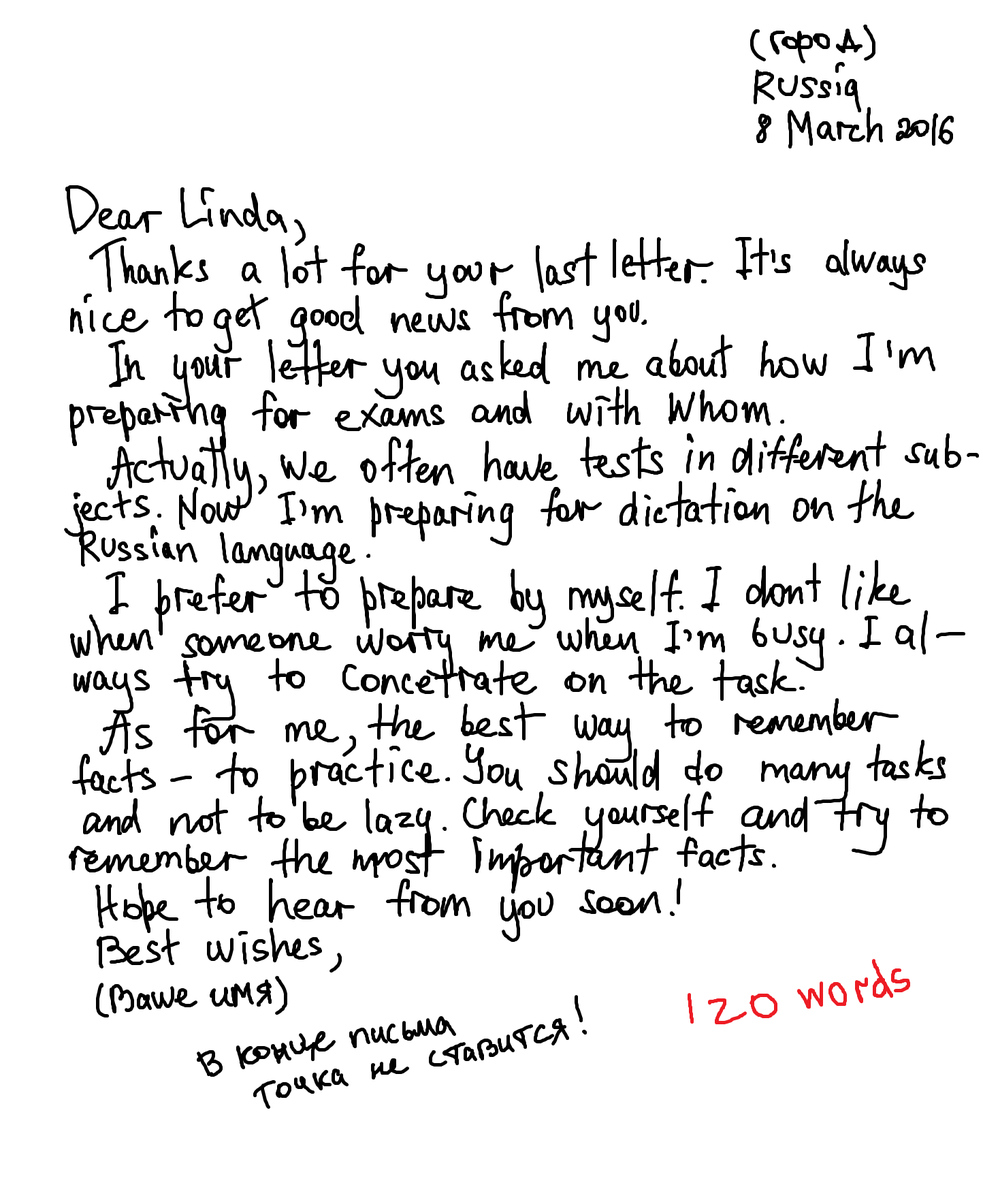 (город)
Russia
8 March 2016
Dear Linda,
Thanks a lot for your last letter. It's always
nice to get good news from you.
In your letter you asked me about how I'm
preparing for exams and with whom.
Actually, we often have tests in different sub-
jects. Now I'm preparing for dictation on the
Russian language.
I prefer to prepare by myself. I dont like
when someone worry me when I'm busy. I al-
ways try to concetrate on the task.
As for me, the best way to remember
facts – to practice. You should do many tasks
and not to be lazy. Check yourself and try to
remember the most important facts.
Hope to hear from you soon!
Best wishes,
(Ваше имя)
120 words
В конце письма
точка не ставится!